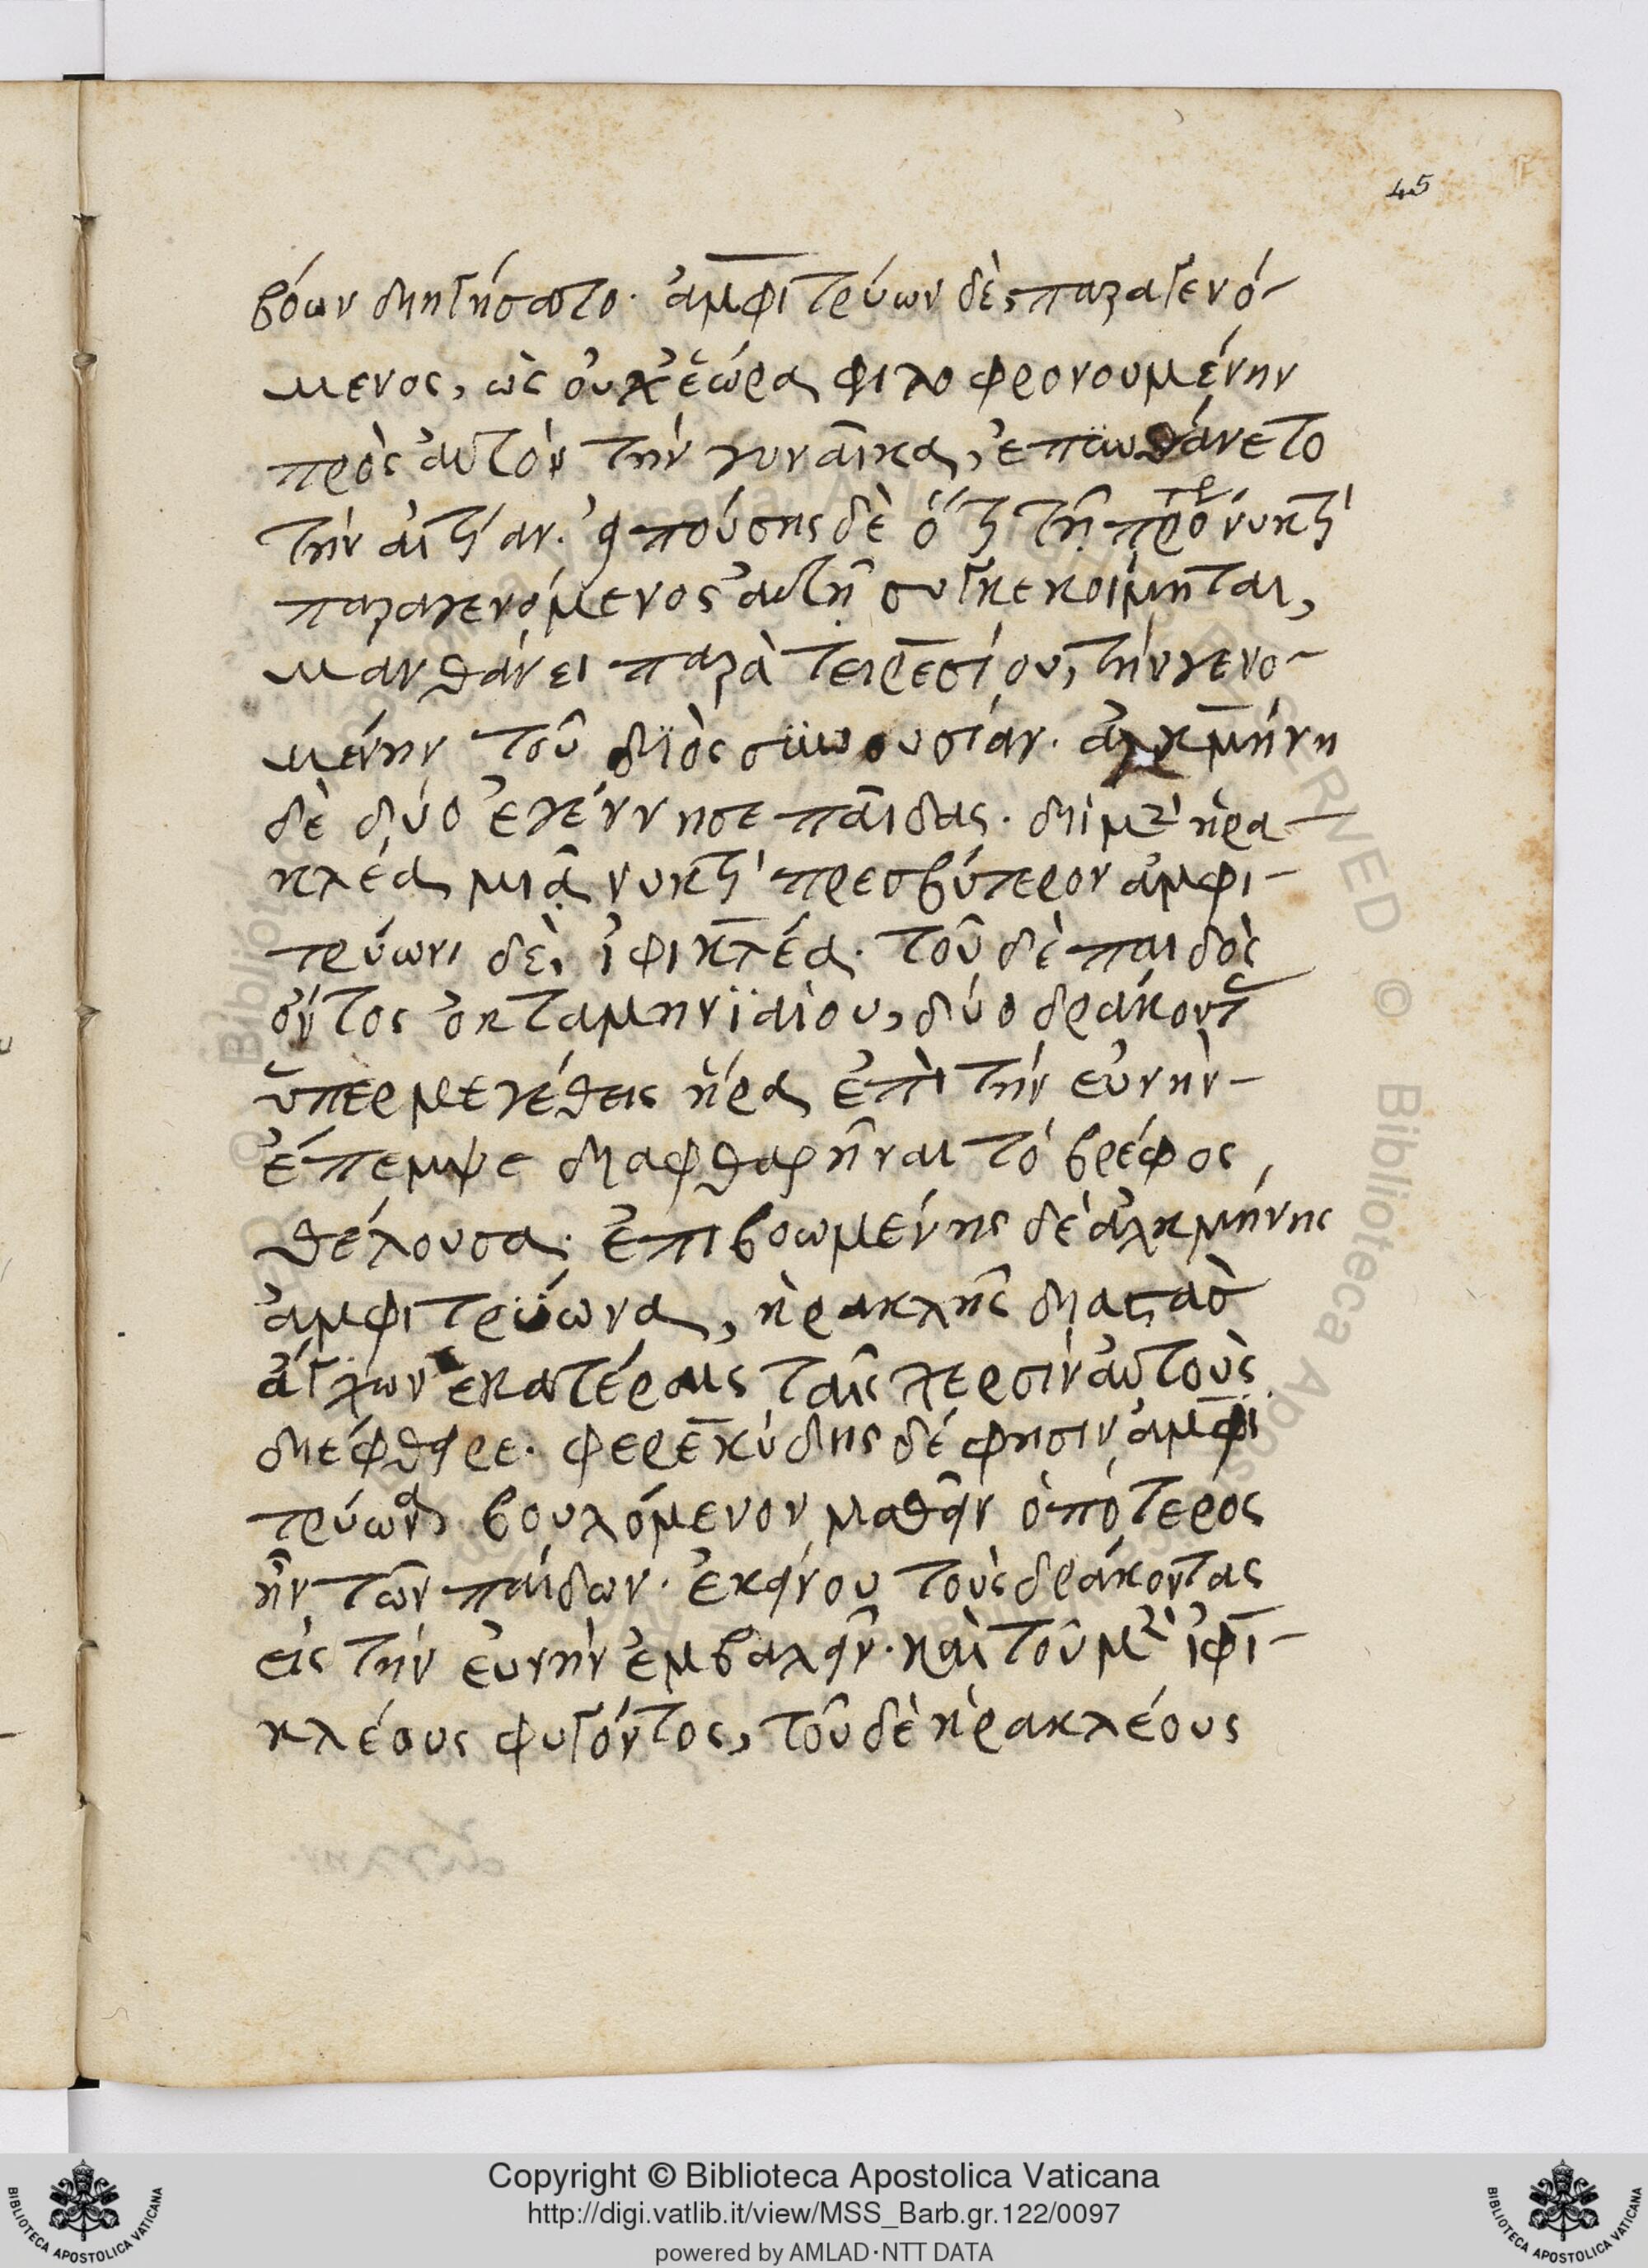 45
βόων διηγήσατο. ἀμφιτρύων δὲ, παραγενό-
μενος, ὡς οὐχ ἑώρα φιλοφρονουμένην
πρὸς αὐτὸν τὴν γυναῖκα, ἐπυνθάνετο
τὴν αἰτίαν. εἰπούσης δὲ ὅτι τῇ προτέρ νυκτὶ
παραγενόμενος αὐτῇ συγκεκοίμηται,
μανθάνει παρὰ τειρεσίου, τὴν γενο-
μένην τοῦ διὸς συνουσίαν. ἀλκμήνη
δὲ δύο ἐγέννησε παῖδας. διῒ μὲν ἡρα-
κλέα μιᾷ νυκτὶ πρεσβύτερον ἀμφι-
τρύωνι δὲ, ἰφικλέα. τοῦ δὲ παιδὸς
ὄντος ὀκταμηνιαίου, δύο δράκοντας
ὑπερμεγέθεις ἥρα ἐπὶ τὴν εὐνὴν-
ἔπεμψε διαφθαρῆναι τὸ βρέφος,
θέλουσα. ἐπιβοωμένης δὲ ἀλκμήνης
ἀμφιτρύωνα, ἡρακλῆς διαστὰς
ἄγχων ἑκατέραις ταῖς χερσὶν αὐτοὺς
διέφθειρε. φερεκύδης δέ φησιν ἀμφι
τρύωνα βουλόμενον μαθεῖν ὁπότερος
ἦν τῶν παίδων. ἐκείνου τοὺς δράκοντας
εἰς τὴν εὐνὴν ἐμβαλεῖν. καὶ τοῦ μὲν ἰφι-
κλέους φυγόντος, τοῦ δὲ ἡρακλέους
Copyright © Biblioteca Apostolica Vaticana
http://digi.vatlib.it/view/MSS_Barb.gr.122/0097
powered by AMLAD·NTT DATA